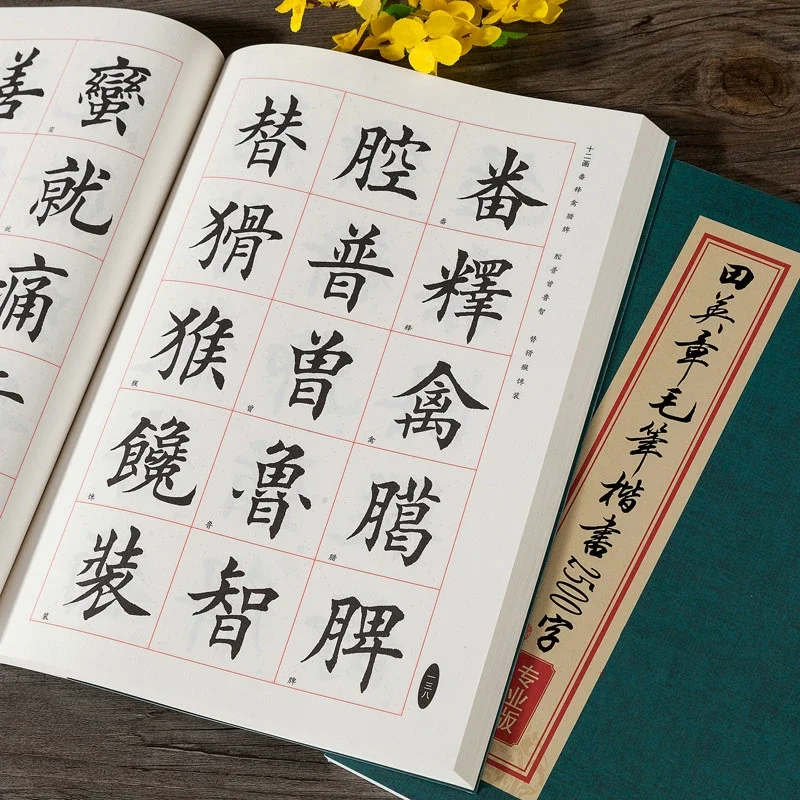 十二画 番 释 禽 脾 腔 普 曾 鲁 智 替 猾 猴 馋 装
番
番
釋
释
禽
禽
脾
脾
腔
普
曾
曾
魯
鲁
智
替
猾
猴
猴
饞
馋
裝
装
一三八
蠻
就
就
痛
善
田英章毛筆楷書2500字
专业版